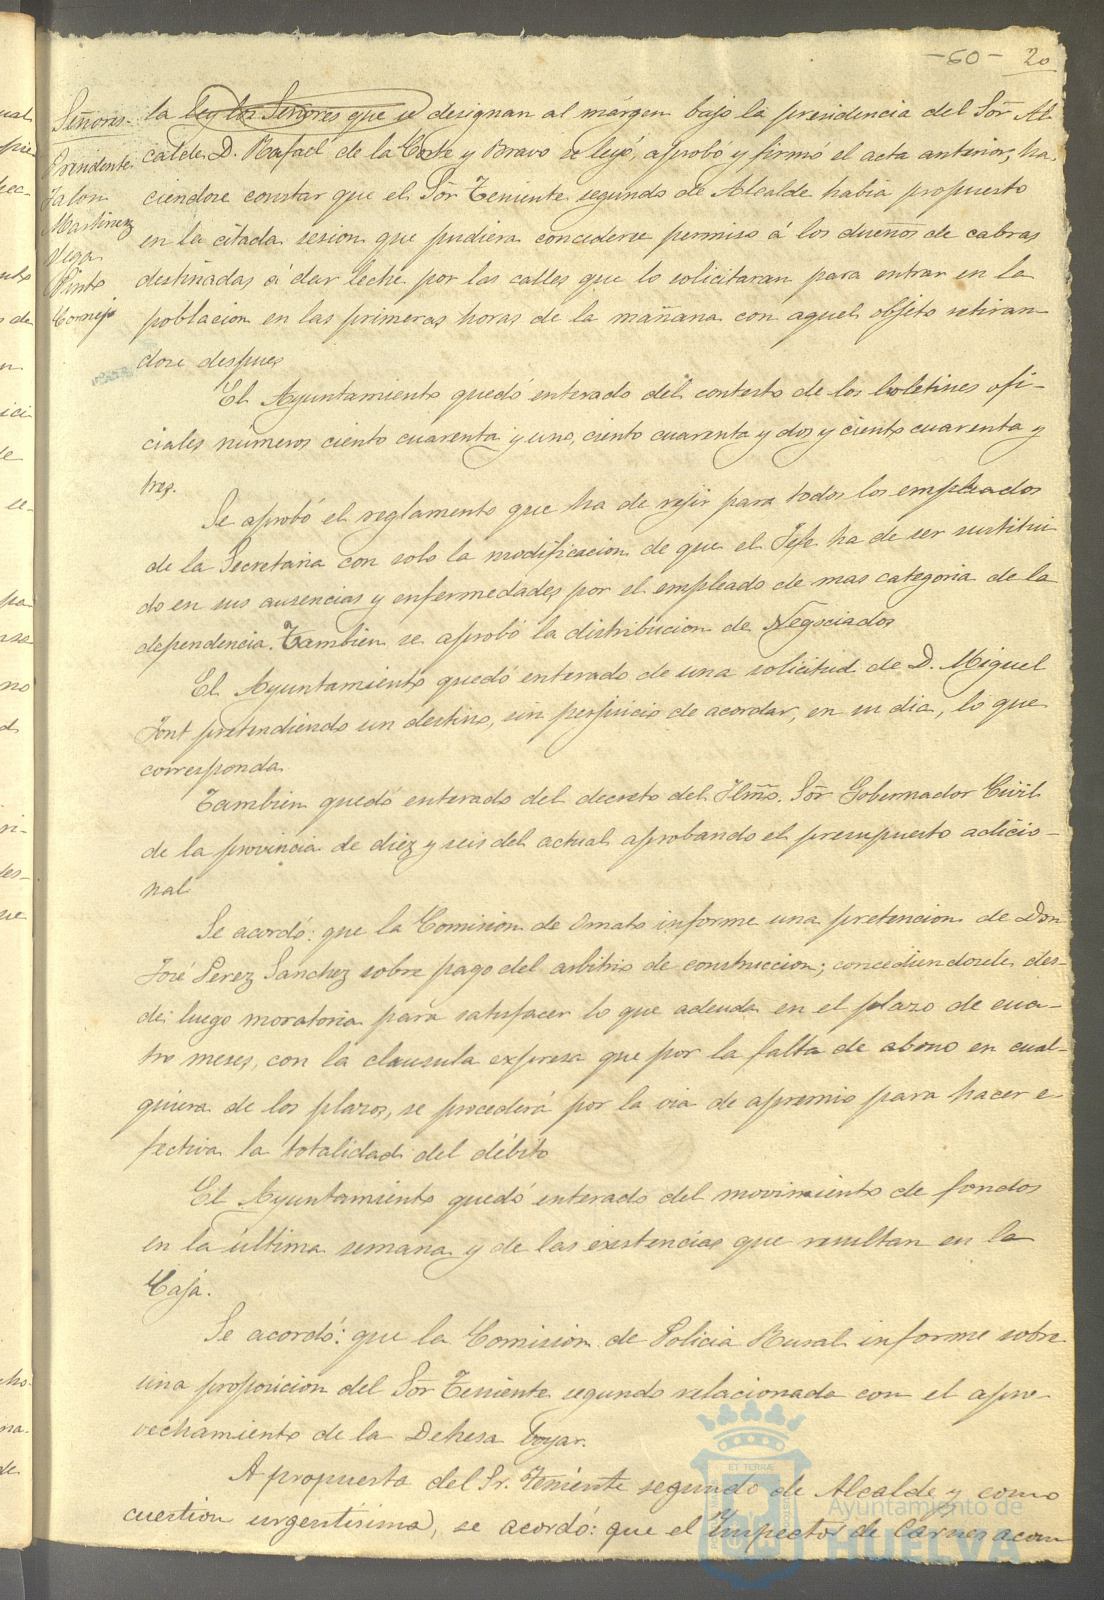 -60- 20
Señores-
Presidente
Jalon
Martinez
Vega
Pinto
Cornejo
la ley los Señores que se designan al márgen bajo la presidencia del Sōr Al-
calde D. Rafael de la Corte y Bravo se leyó, aprobó y firmó el acta anterior, ha-
ciendose constar que el Sōr Teniente segundo de Alcalde habia propuesto
en la citada sesion que pudiera concederse permiso á los dueños de cabras
destinadas á dar leche por las calles que lo solicitaran para entrar en la
poblacion en las primeras horas de la mañana con aquel objeto retiran-
dose despues
El Ayuntamiento quedó enterado del contesto de los boletines ofi-
ciales números ciento cuarenta y uno, ciento cuarenta y dos y ciento cuarenta y
tres.
Se aprobó el reglamento que ha de rejir para todos los empleados
de la Secretaria con solo la modificacion de que el Jefe ha de ser sustitui
do en sus ausencias y enfermedades por el empleado de mas categoria de la
dependencia. Tambien se aprobó la distribucion de Negociados
El Ayuntamiento quedó enterado de una solicitud de D. Miguel
Font pretendiendo un destino, sin perjuicio de acordar, en su dia, lo que
corresponda
Tambien quedó enterado del decreto del Ilmō. Sōr Gobernador Civil
de la provincia de diez y seis del actual aprobando el presupuesto adicio-
nal
Se acordó: que la Comision de Ornato informe una pretencion de Don
José Perez Sanchez sobre pago del arbitrio de construccion; concediendosele des-
de luego moratoria para satisfacer lo que adeuda en el plazo de cua-
tro meses, con la clausula expresa que por la falta de abono en cual-
quiera de los plazos, se procederá por la via de apremio para hacer e-
fectiva la totalidad del débito
El Ayuntamiento quedó enterado del movimiento de fondos
en la última semana y de las existencias que resultan en la
Caja.
Se acordó: que la Comision de Policia Rural informe sobre
una proposicion del Sōr Teniente segundo relacionada con el apro-
vechamiento de la Dehesa boyar.
A propuesta del Sr. Teniente segundo de Alcalde y como
cuestion urgentísima, se acordó: que el Inspector de Carnes acom
Ayuntamiento de
HUELVA